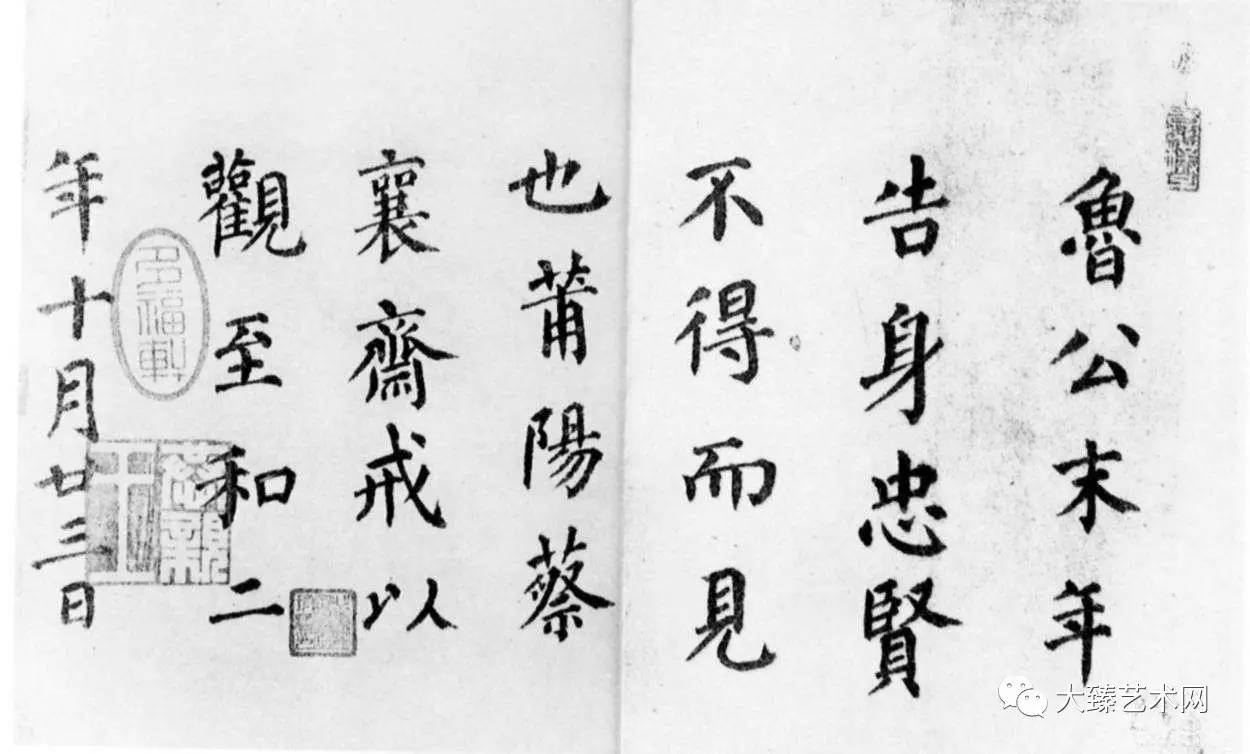 魯公末年
告身忠賢
不得而見
也莆陽蔡
襄齋戒以
觀至和二
年十月廿三日
多福軒
大臻艺术网